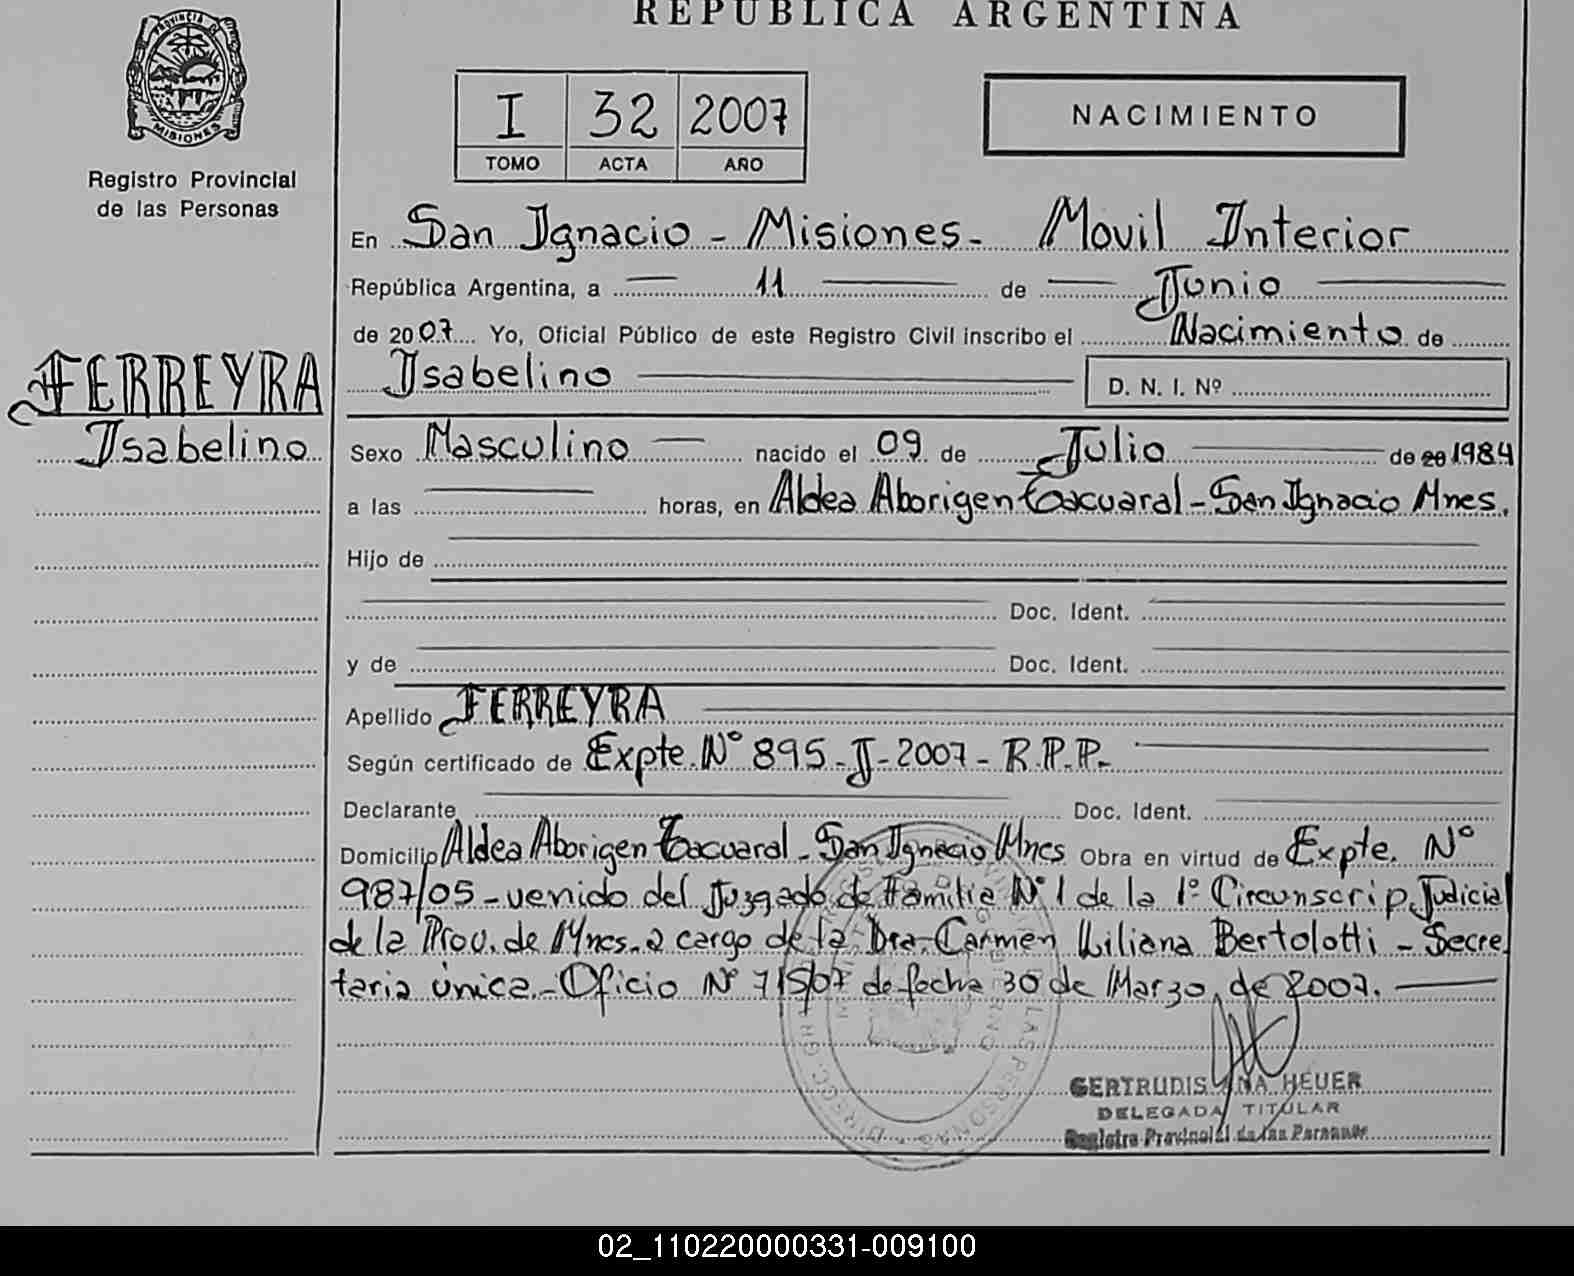 REPUBLICA ARGENTINA
PROVINCIA DE
MISIONES
Registro Provincial
de las Personas
I 32 2007
TOMO ACTA AÑO
NACIMIENTO
En San Ignacio - Misiones - Movil Interior
República Argentina, a 11 de Junio
de 2007 Yo, Oficial Público de este Registro Civil inscribo el Nacimiento de
Isabelino D. N. I. Nº
FERREYRA
Isabelino
Sexo Masculino nacido el 09 de Julio de 20 1984
a las horas, en Aldea Aborigen Tacuaral - San Ignacio Mnes.
Hijo de
Doc. Ident.
y de Doc. Ident.
Apellido FERREYRA
Según certificado de Expte. Nº 895 - J - 2007 - R.P.P.
Declarante Doc. Ident.
Domicilio Aldea Aborigen Tacuaral - San Ignacio Mnes Obra en virtud de Expte. Nº
987/05 - venido del Juzgado de Familia Nº 1 de la 1º Circunscrip. Judicial
de la Prov. de Mnes. a cargo de la Dra. Carmen Liliana Bertolotti - Secre
taria única - Oficio Nº 715/07 de fecha 30 de Marzo de 2007.
GERTRUDIS ANA HEUER
DELEGADA TITULAR
Registro Provincial de las Personas
02_110220000331-009100